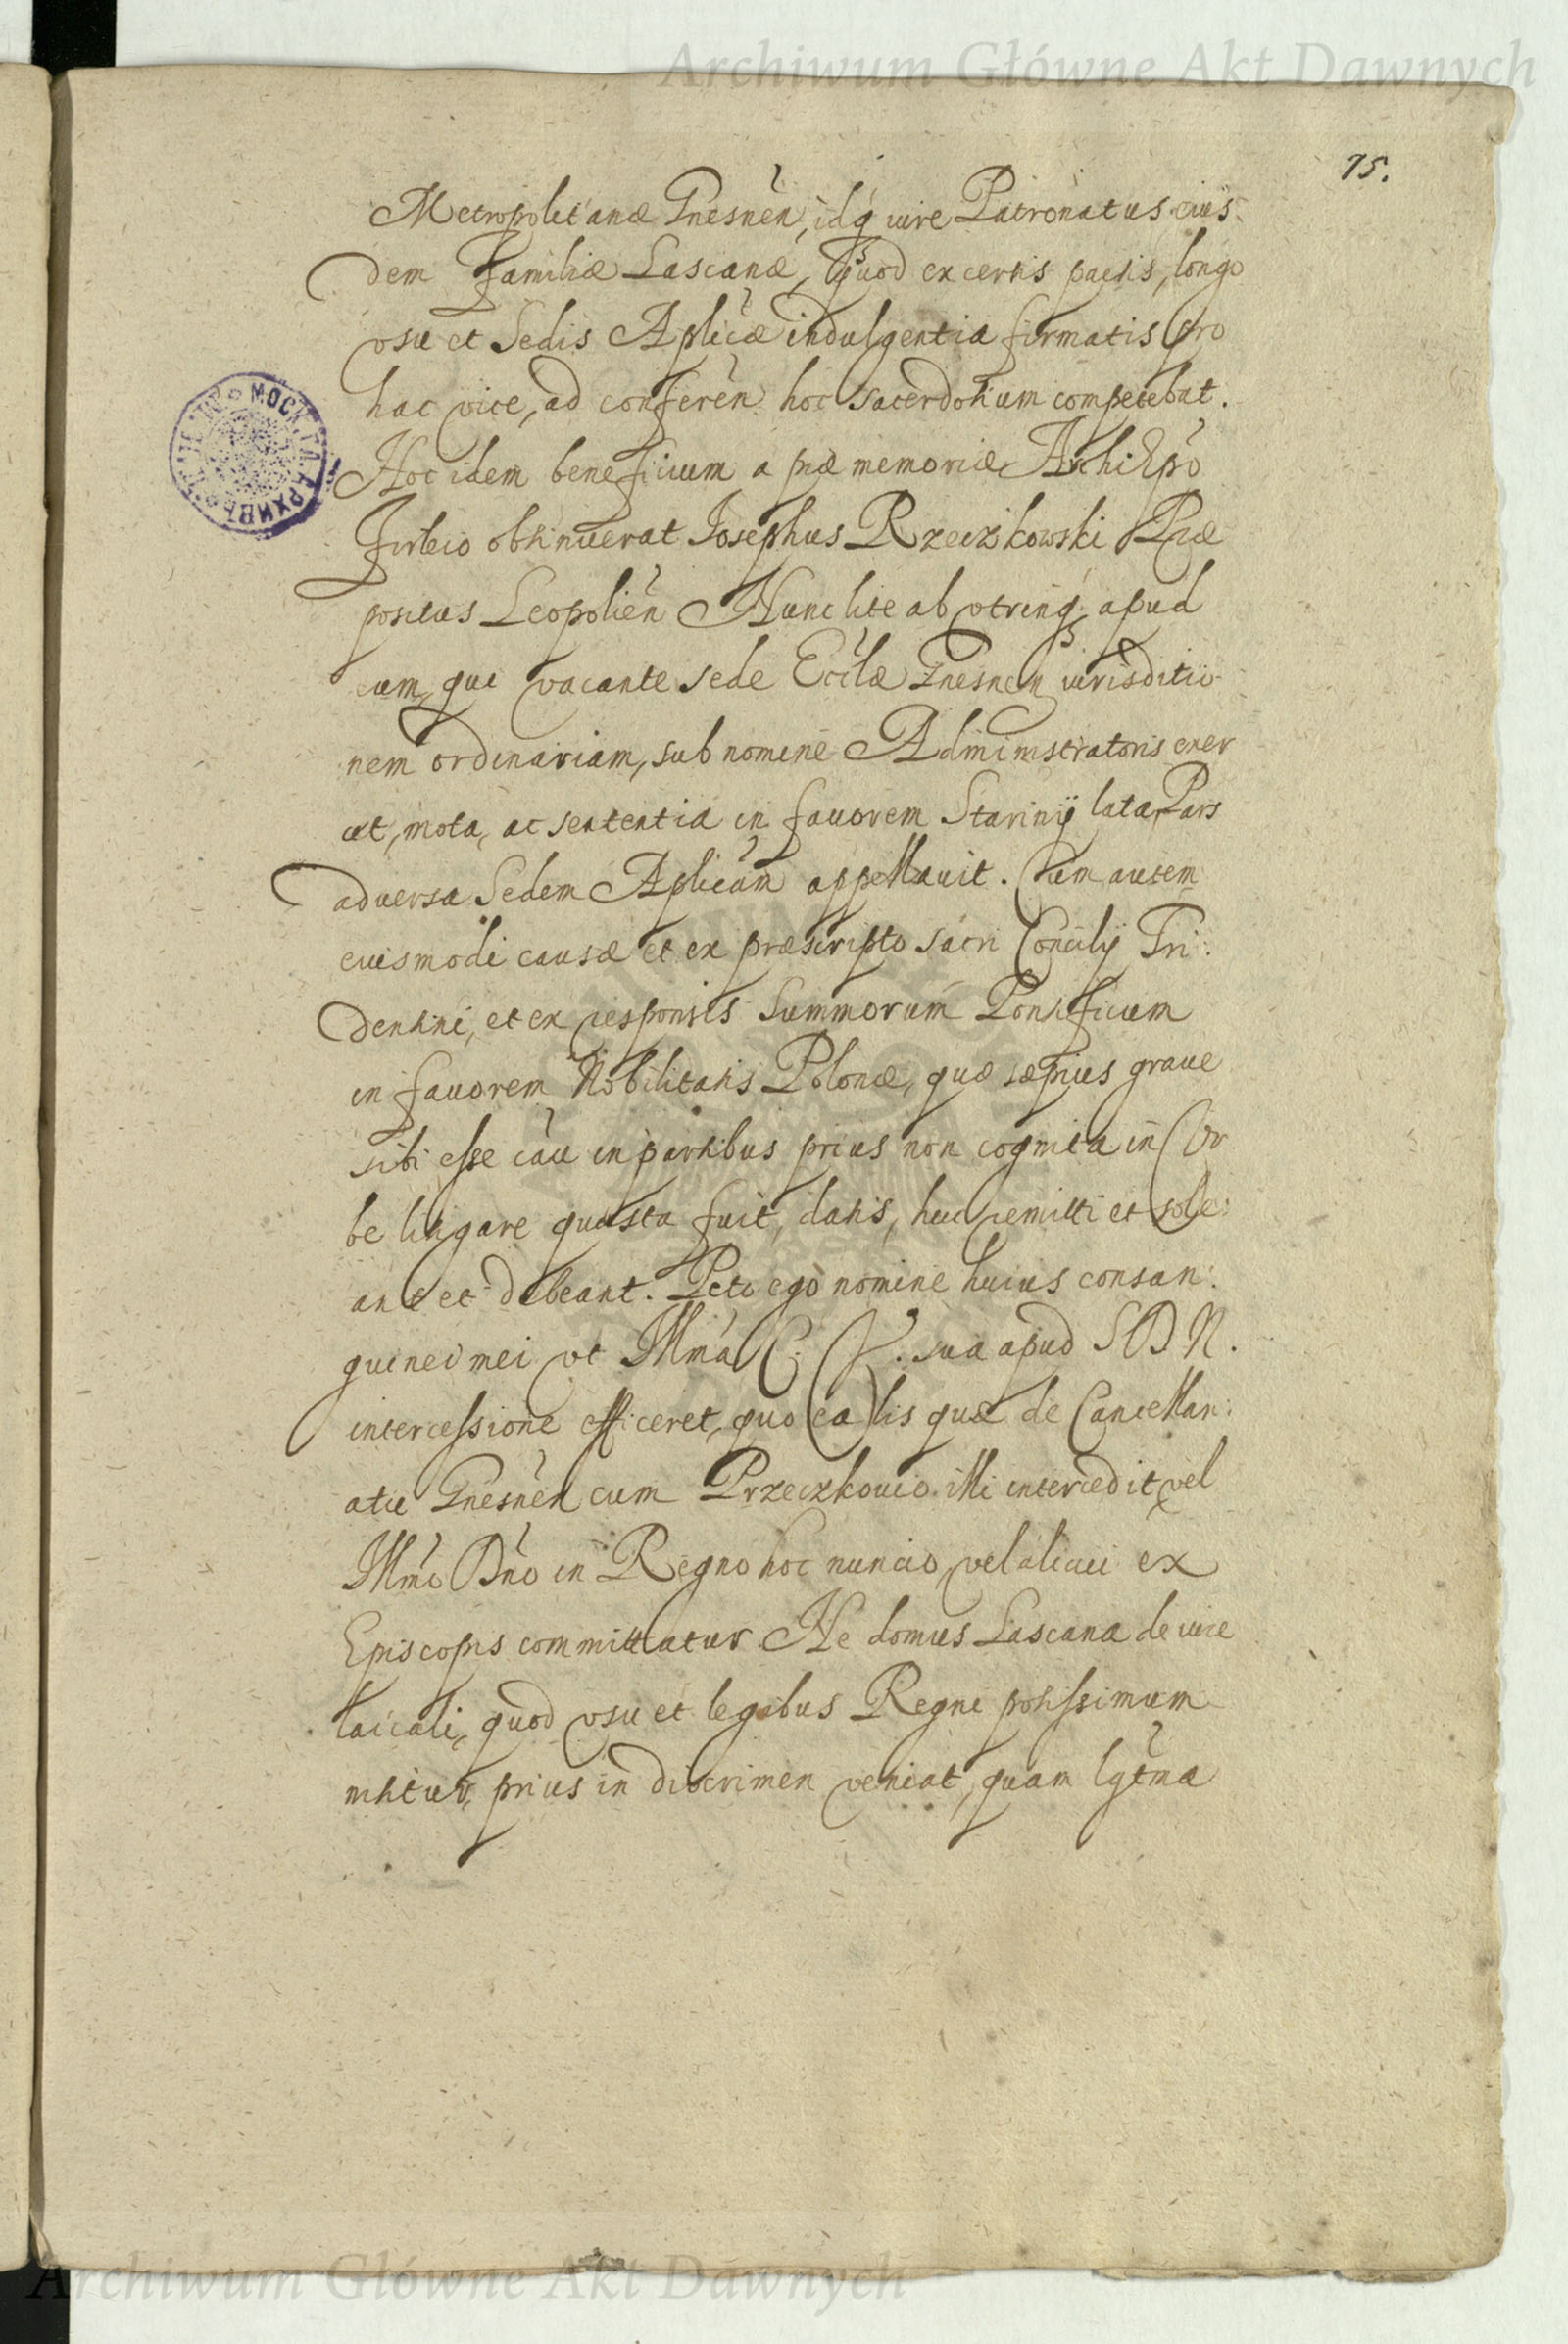 Archiwum Główne Akt Dawnych
75.
Metropolitanæ Gnesnen, idq́ iure Patronatus eius:
dem Familiæ Lascanæ, quod ex certis pactis, longo
vsu et Sedis Aplicæ indulgentia firmatis pro
hac vice, ad conferen hoc sacerdotium competebat.
Hoc idem beneficium a piæ memoriæ ArchiEpo
Firleio obtinuerat Josephus Rzeczkowski Præ
positus Leopolien Hunc lite ab vtrinq́ apud
eum, qui vacante sede Ecclæ Gnesnen iurisditio
nem ordinariam, sub nomine Administratoris exer
cet, mota, ac sententia in fauorem Starinij lata, Pars
aduersa Sedem Aplicam appellauit. Cum autem
eiusmodi causæ et ex præscripto sacri Concilij Tri:
dentini, et ex responsis Summorum Pontificum
in fauorem Nobilitatis Polonæ, quæ sæpius graue
sibi esse cau in partibus prius non cognita in Vr
be litigare questa fuit, datis, huc remitti et sole:
ant et debeant. Peto ego nomine huius consan:
guinei mei vt Illma C. V. sua apud S D N.
intercessione efficeret, quo ea lis quæ de Cancellari:
atu Gnesnen cum Przeczkouio illi intercedit, vel
Illmo Dno in Regno hoc nuncio, vel alicui ex
Episcopis committatur Ne domus Lascana de iure
laicali, quod vsu et legibus Regni potissimum
nititur, prius in discrimen veniat, quam lgtma
Archiwum Główne Akt Dawnych